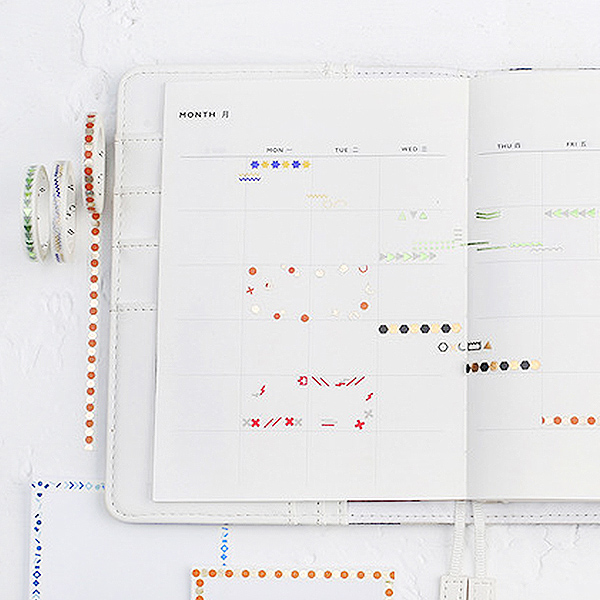 MONTH 月
MON 一 TUE 二 WED 三 THU 四 FRI 五